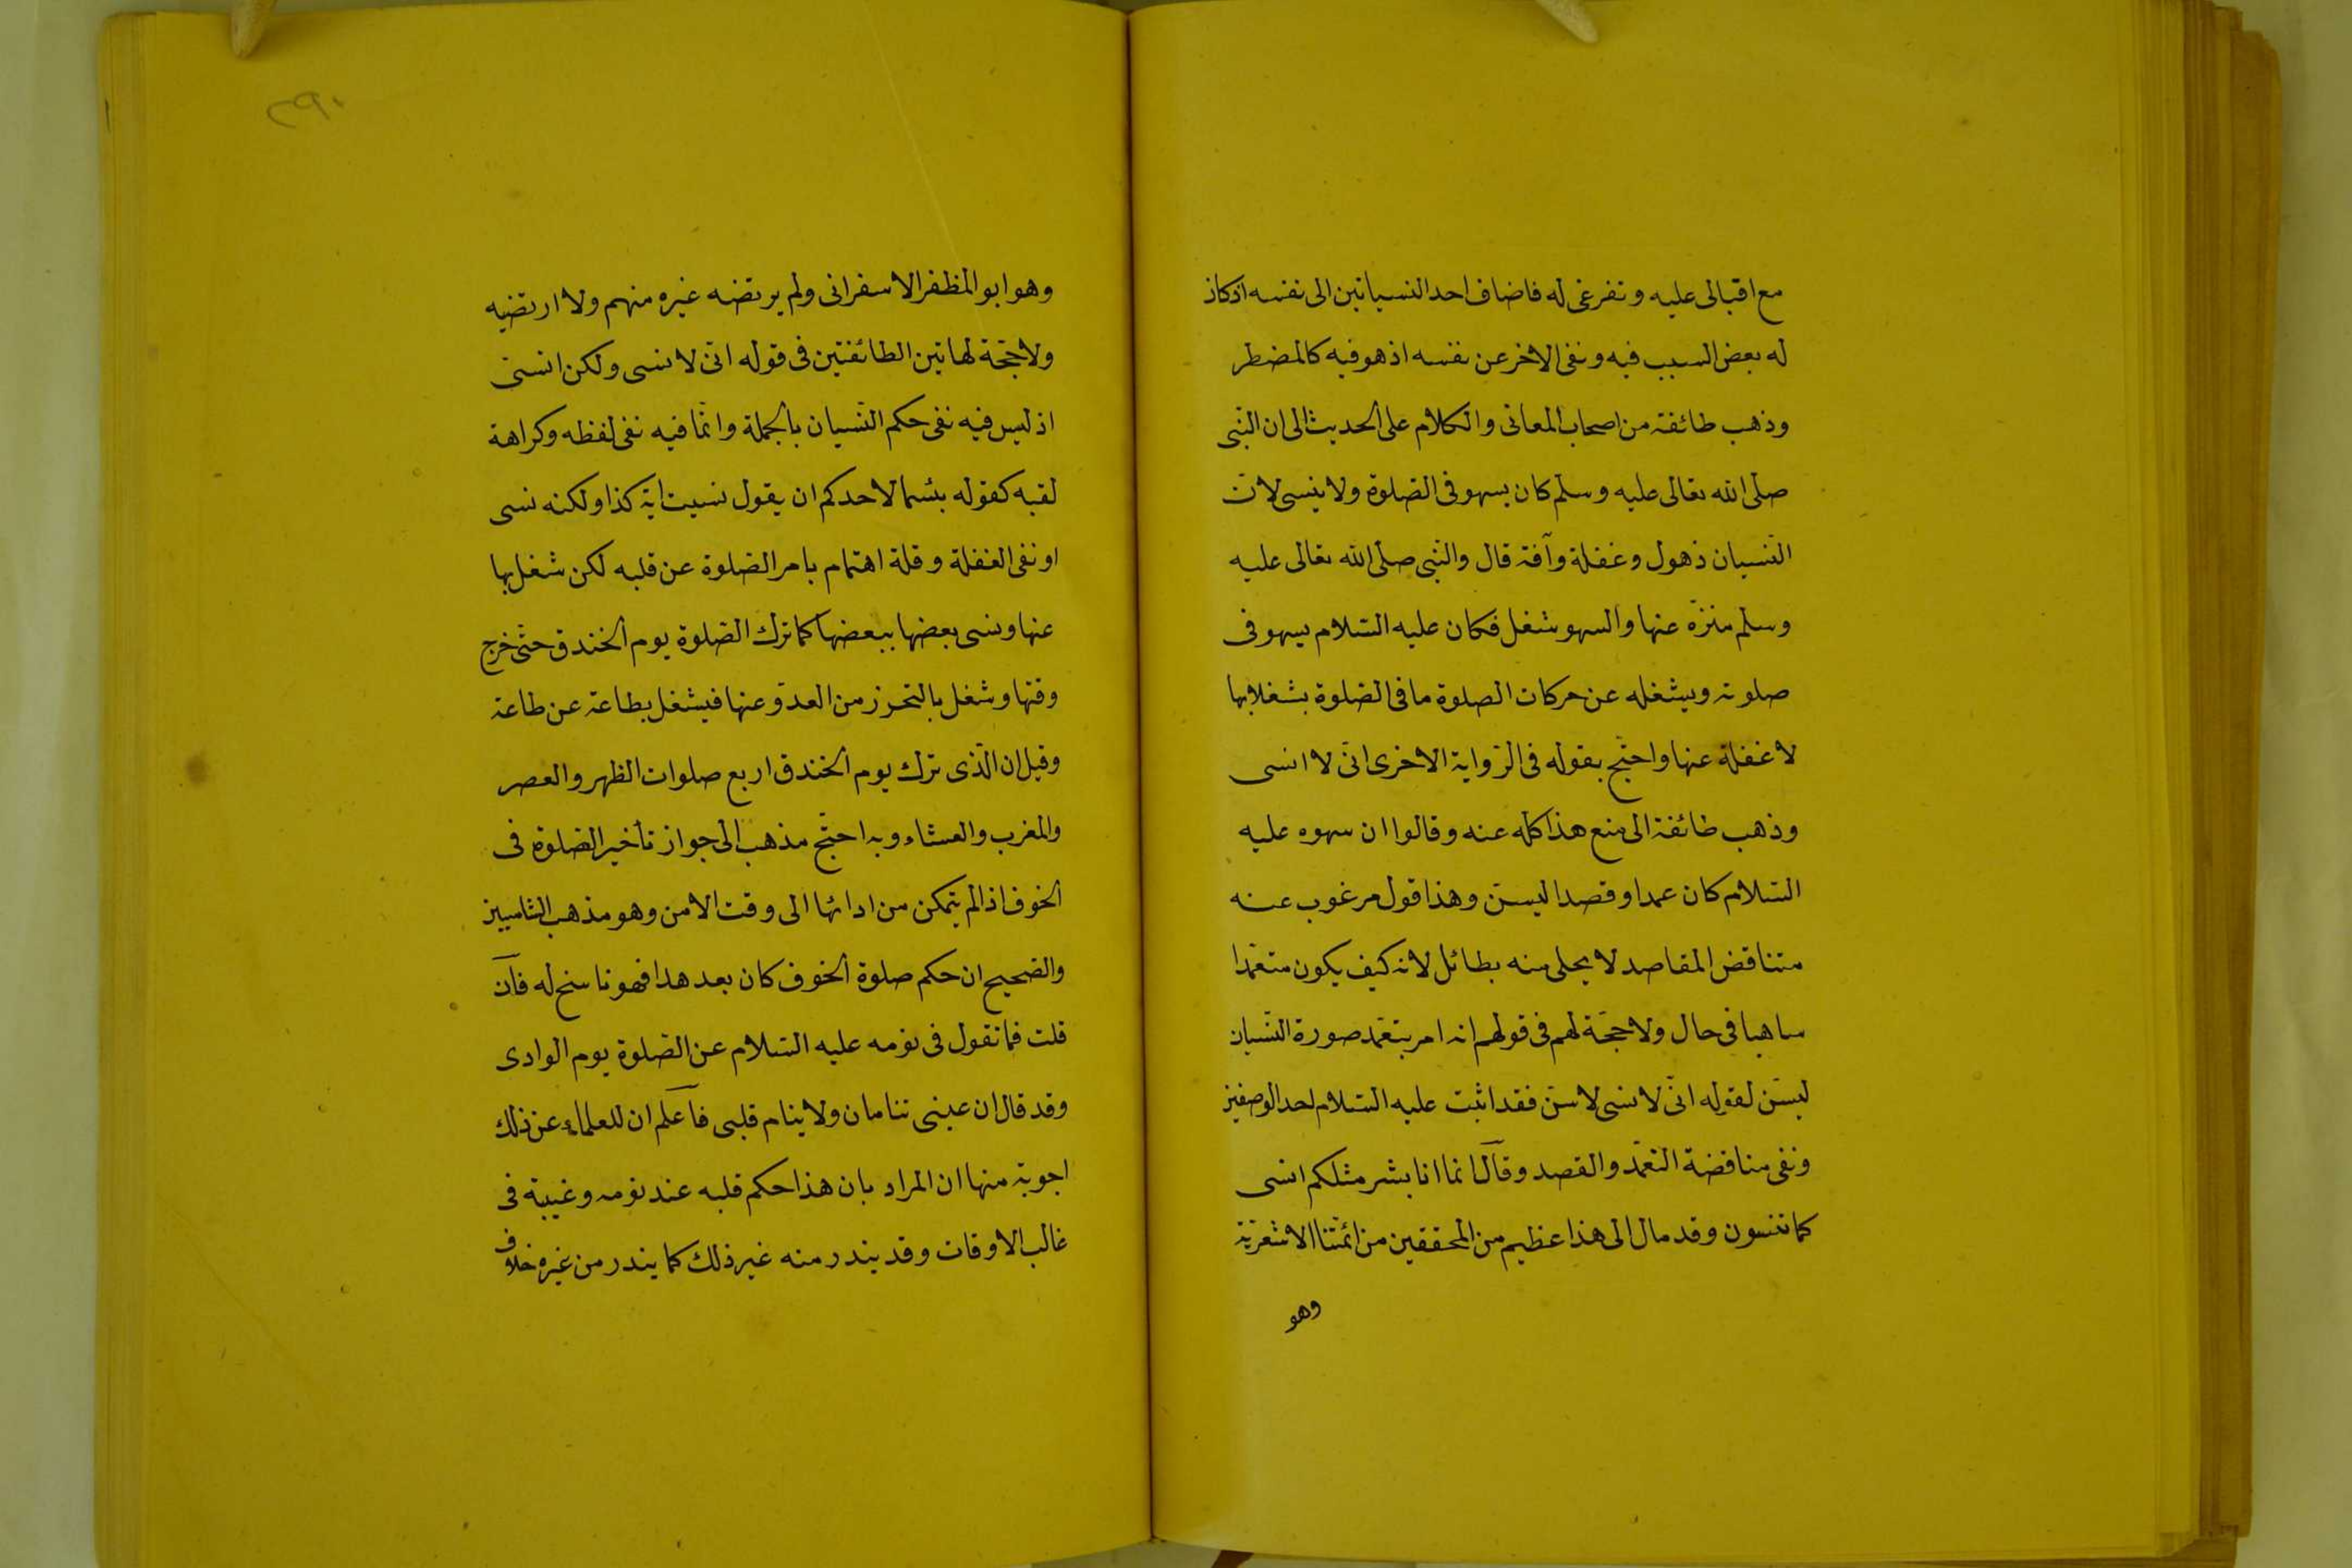 مع اقبالى عليه وتفرغى له فاضاف احد النسيانين الى نفسه اذ كان
له بعض السبب فيه ونفى الاخر عن نفسه اذ هو فيه كالمضطر
وذهب طائفة من اصحاب المعانى والكلام على الحديث الى ان النّبى
صلى الله تعالى عليه وسلم كان يسهو فى الصّلوة ولا ينسى لانّ
النّسيان ذهول وغفلة وآفة قال والنّبى صلّى الله تعالى عليه
وسلم منزّه عنها والسهو شغل فكان عليه السّلام يسهو فى
صلوته ويشغله عن حركات الصلوة ما فى الصّلوة بشغلا بها
لا غفلة عنها واحتّج بقوله فى الرّواية الاخرى انّى لا انسى
وذهب طائفة الى منع هذا كله عنه وقالوا ان سهوه عليه
السّلام كان عمدا وقصدا ليسنّ وهذا قول مرغوب عنه
متناقض المقاصد لا يحلى منه بطائل لانه كيف يكون متعمّدا
ساهيا فى حال ولا حجّة لهم فى قولهم انه امر بتعمّد صورة النّسيان
ليسّن لقوله انّى لا نسى لاسنّ فقد اثبت عليه السّلام احد الوصفين
ونفى مناقضة التعمّد والقصد وقال انما انا بشر مثلكم انسى
كما تنسون وقد مال الى هذا عظيم من المحققين من ائمّتنا الاشعريّة
وهو
٢٩٠
وهو ابو المظفر الاسفرانى ولم يرتضه غيره منهم ولا ارتضيه
ولا حجّة لهاتين الطائفتين فى قوله انّى لا نسى ولكن انسّى
اذ ليس فيه نفى حكم النّسيان بالجملة وانّما فيه نفى لفظه وكراهة
لقبه كقوله بئسما لاحدكم ان يقول نسيت اية كذا ولكنه نسى
او نفى الغفلة وقلة اهتمام بامر الصّلوة عن قلبه لكن شغل بها
عنها ونسى بعضها ببعضها كما ترك الصّلوة يوم الخندق حتّى خرج
وقتها وشغل بالتحرز من العدوّ عنها فيشغل بطاعة عن طاعة
وقيل ان الّذى ترك يوم الخندق اربع صلوات الظهر والعصر
والمغرب والعشاء وبه احتّج مذهب الى جواز تأخير الصّلوة فى
الخوف اذ الم يتمكن من ادائها الى وقت الامن وهو مذهب الشاميين
والصّحيح ان حكم صلوة الخوف كان بعد هدا فهو ناسخ له فان
قلت فما تقول فى نومه عليه السّلام عن الصّلوة يوم الوادى
وقد قال ان عينى تنامان ولا ينام قلبى فاعلم ان للعلماء عن ذلك
اجوبة منها ان المراد بان هذا حكم قلبه عند نومه وغيبة فى
غالب الاوقات وقد يندر منه غير ذلك كما يندر من غيره خلاف